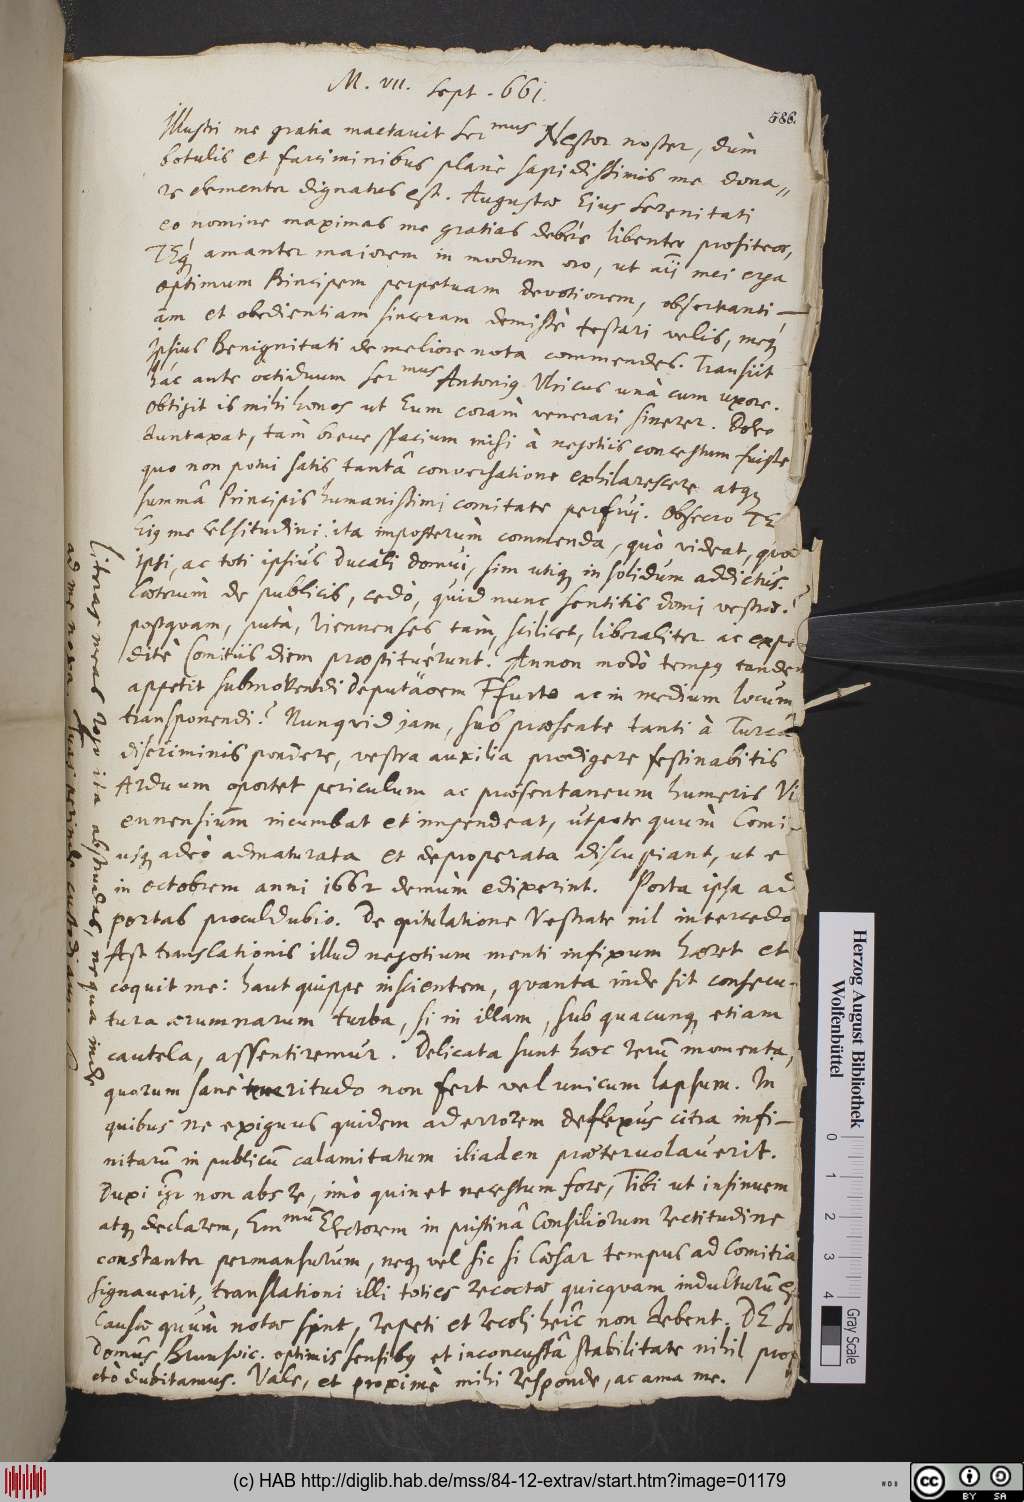 M. VII. Sept. 661.
588.
Illustri me gratia mactavit Ser mus Nestor noster, dùm
botulis et farciminibus planè sapidissimis me dona,,
re clementer dignatus est. Augustae Ejus Serenitati
eo nomine maximas me gratias debere libenter profiteor,
TEq amanter maiorem in modum oro, ut aïi mei erga
optimum Principem perpetuam devotionem, observanti,
am et obedientiam sinceram demissè testari velis, meq
Ipsius Benignitati de meliore nota commendes. Transiit
hàc ante octiduum Ser mus Antonig Ulricus unà cum uxore.
Obtigit is mihi honos ut Eum coràm venerari sinerer. Doleo
duntaxat, tàm breve spacium mihi à negotiis concessum fuisse
quo non potui satis tantâ conversatione exhilarescere atq
summâ Principis humanissimi comitate perfrui. Obsecro TE
hig me Celsitudini ita imposterùm commenda, quò videat, quod
ipsi, ac toti ipsius Ducali domui, sim utiq in solidum addictus.
Caeterùm de publicis, cedò, quid nunc sentitis domi vestrae?
postquam, putà, Viennenses tàm, scilicet, liberaliter ac expe
ditè Comitiis diem praestituerunt. Annon modò tempg eandem
appetit submovendi Deputãoem Ffurto ac in medium locum
transponendi? Nunquid jam, sub praeseate tanti à Turcâ
discriminis pondere, vestra auxilia prodigere festinabitis
Arduum oportet periculum ac praesentaneum humeris Vi
ennensium incumbat et impendeat, utpote quùm Comi-
usq adeò admaturata et deproperata discupiant, ut e
in octobrem anni 1662 demùm edixerint. Porta ipsa ad
portas proculdubio. De opitulatione Vestrate nil intercedo
Ast translationis illud negotium menti infixum haeret et
coquit me: haut quippe inscientem, quanta inde sit consecu-
tura aerumnarum turba, si in illam, sub quacunq etiam
cautela, assentiremur. Delicata sunt haec rerũ momenta,
quorum sanè teneritudo non fert vel unicum lapsum. In
quibus ne exiguus quidem ad errorem deflexus citra infi-
nitarũ in publicũ calamitatum iliaden praetervolaverit.
Duxi igr non abs re, imò quin et necessum fore, Tibi ut insinuem
atq declarem, Em mũ Electorem in pristinâ Consiliorum rectitudine
constanter permansurum, neq vel sic si Caesar tempus ad Comitia
signaverit, translationi illi toties recoctae quicquam indulturũ
Causae quùm notae sint, repeti et recoli heîc non debent. DE
Domûs Brunsvic. optimis sensibg et inconcussâ stabilitate nihil
dubitamus. Vale, et proximè mihi responde, ac ama me.
Literas meas rogo ita abstrudas, ne qua inde
ad me noxa. Tuas perinde custodiam.
Herzog August Bibliothek
Wolfenbüttel
0 1 2 3 4
Gray Scale
(c) HAB http://diglib.hab.de/mss/84-12-extrav/start.htm?image=01179
cc BY SA